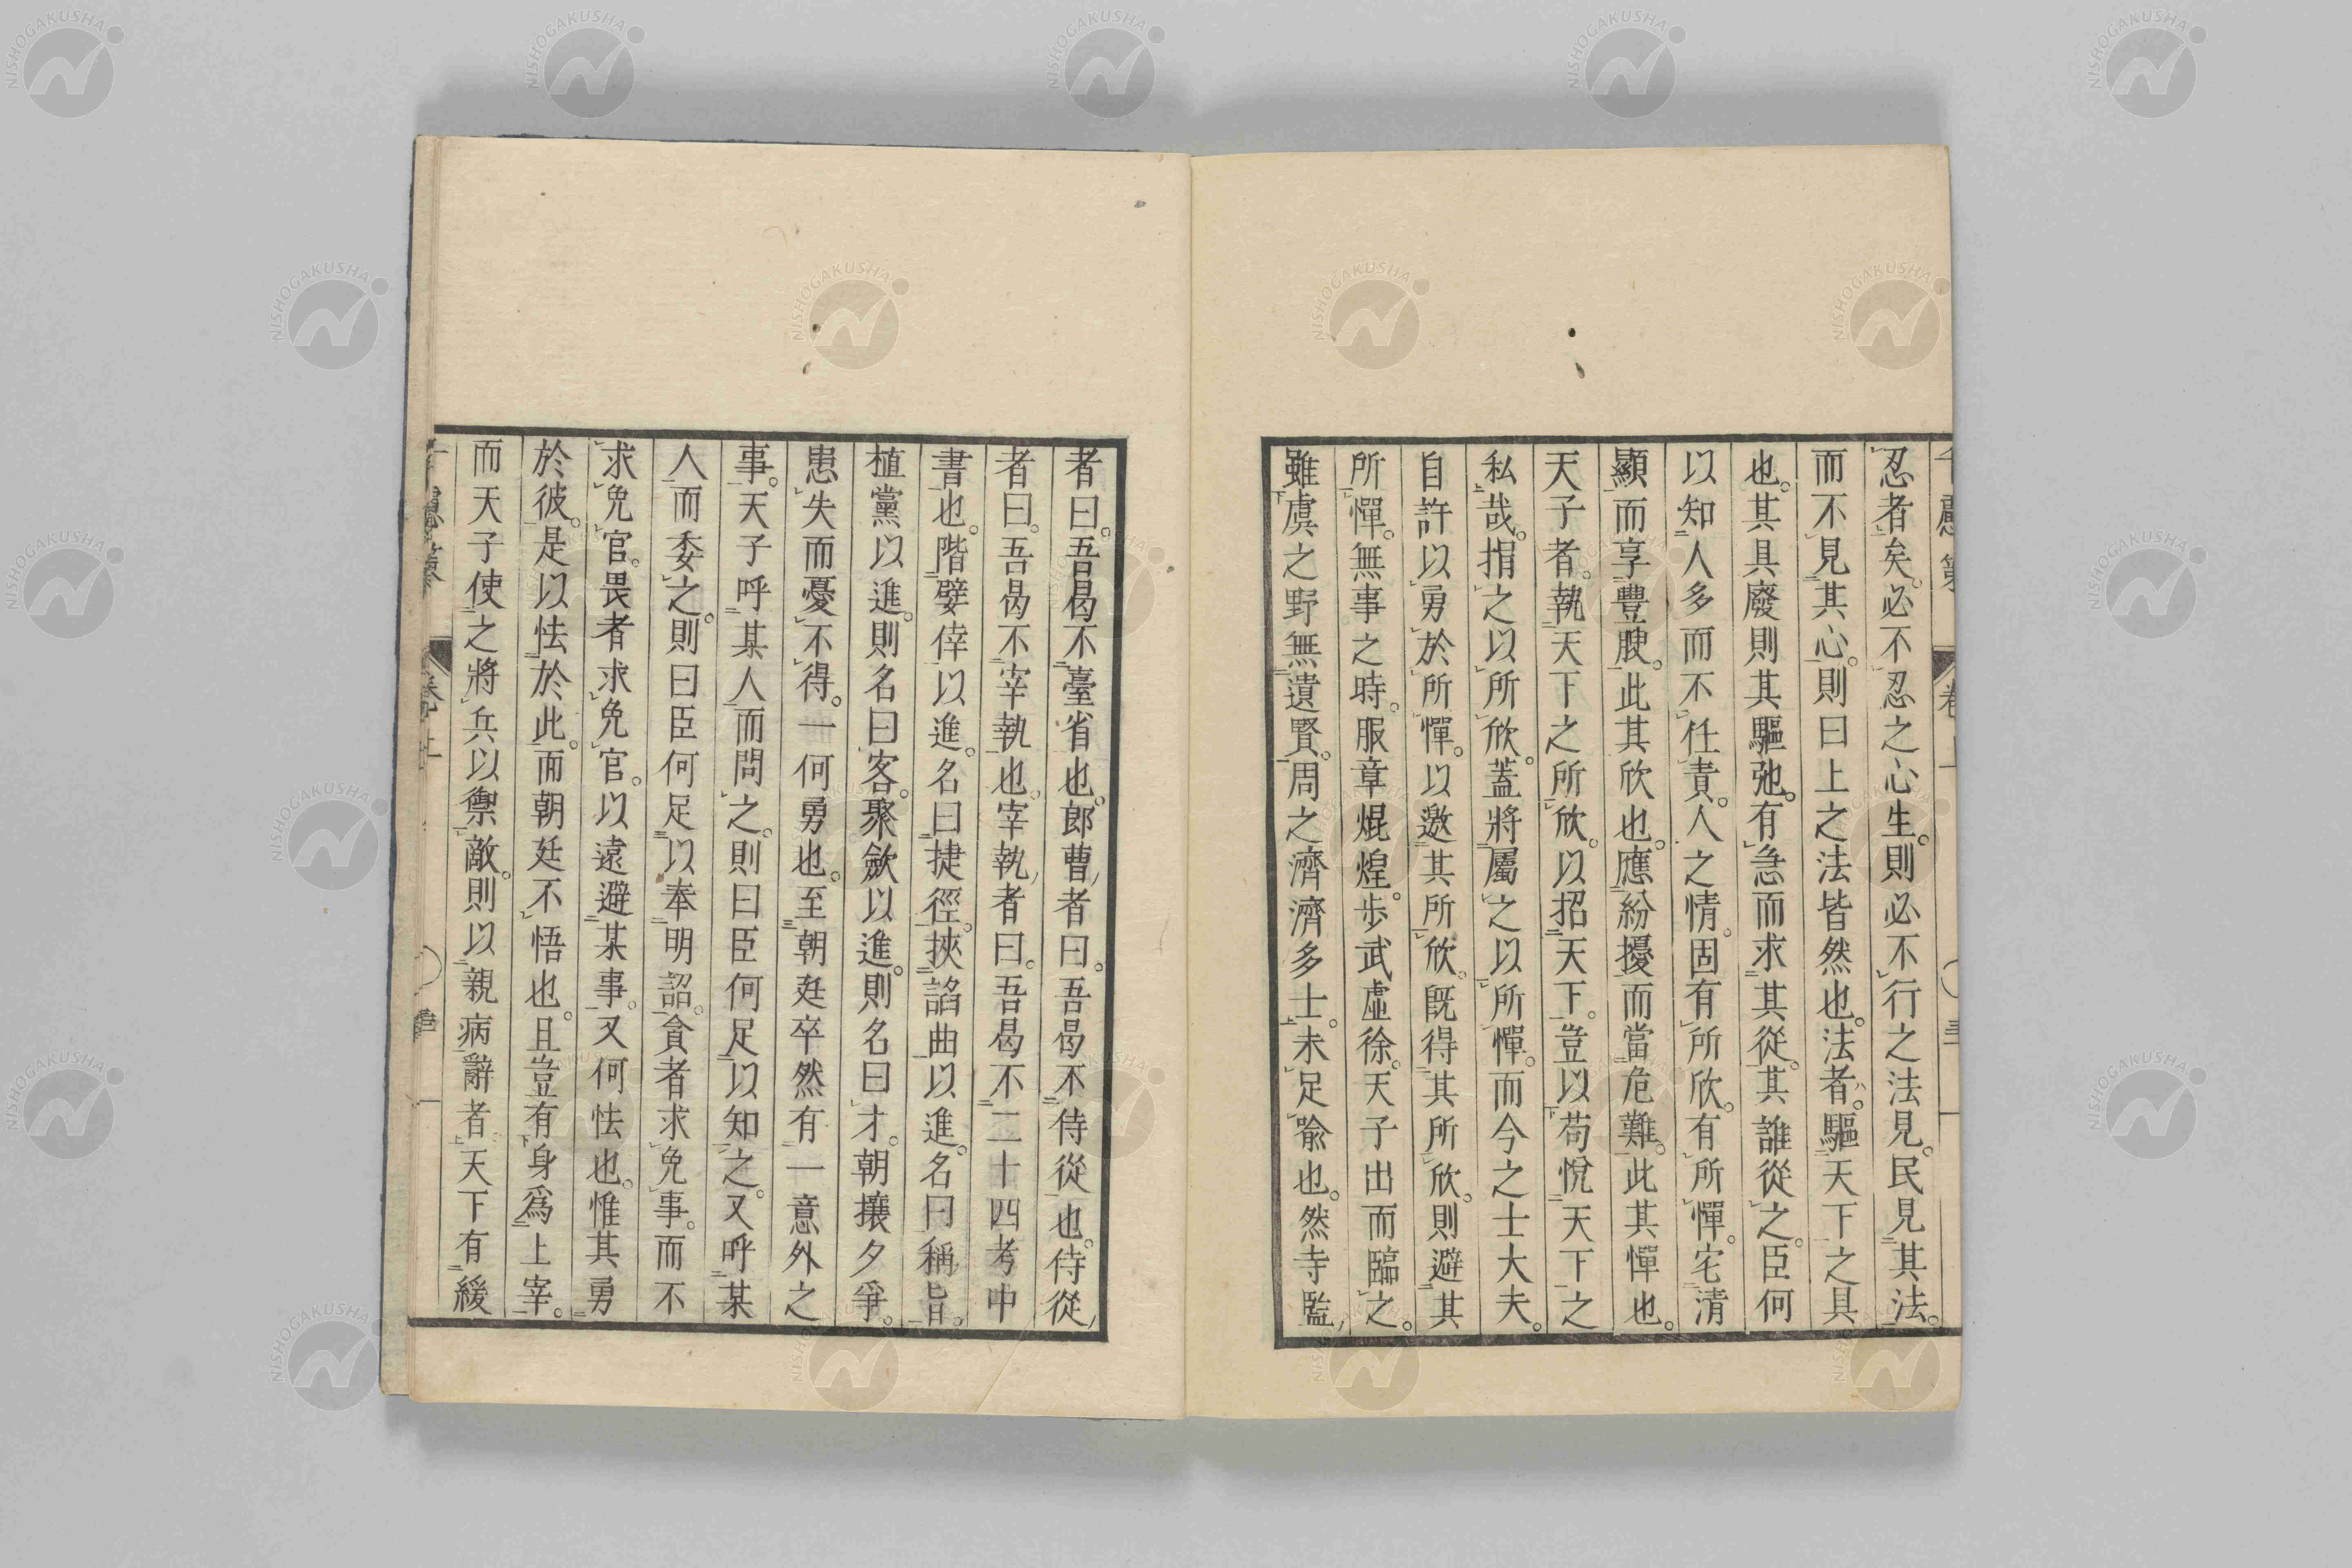 忍者矣。必不忍之心生。則必不行之法見。民見其法。
而不見其心。則曰上之法皆然也。法者。驅天下之具
也。其具廢則其驅弛。有急而求其從。其誰從之。臣何
以知人多而不任責。人之情。固有所欣。有所憚。宅清
顯而享豐腴。此其欣也。應紛擾而當危難。此其憚也。
天子者。執天下之所欣。以招天下。豈以苟悅天下之
私哉。捐之以所欣。蓋將屬之以所憚。而今之士大夫。
自許以勇於所憚。以邀其所欣。既得其所欣。則避其
所憚。無事之時。服章焜煌。步武虛徐。天子出而臨之。
雖虞之野無遺賢。周之濟濟多士。未足喻也。然寺監
者曰。吾曷不臺省也。郎曹者曰。吾曷不侍從也。侍從
者曰。吾曷不宰執也。宰執者曰。吾曷不二十四考中
書也。階嬖倖以進。名曰捷徑。挾諂曲以進。名曰稱旨。
植黨以進。則名曰客。聚斂以進。則名曰才。朝攘夕爭。
患失而憂不得。一何勇也。至朝廷卒然有一意外之
事。天子呼某人而問之。則曰臣何足以知之。又呼某
人而委之。則曰臣何足以奉明詔。貪者求免事。而不
求免官。畏者求免官。以遠避某事。又何怯也。惟其勇
於彼。是以怯於此。而朝廷不悟也。且豈有身爲上宰。
而天子使之將兵以禦敵。則以親病辭者。天下有緩
千慮策
卷上
NISHOGAKUSHA